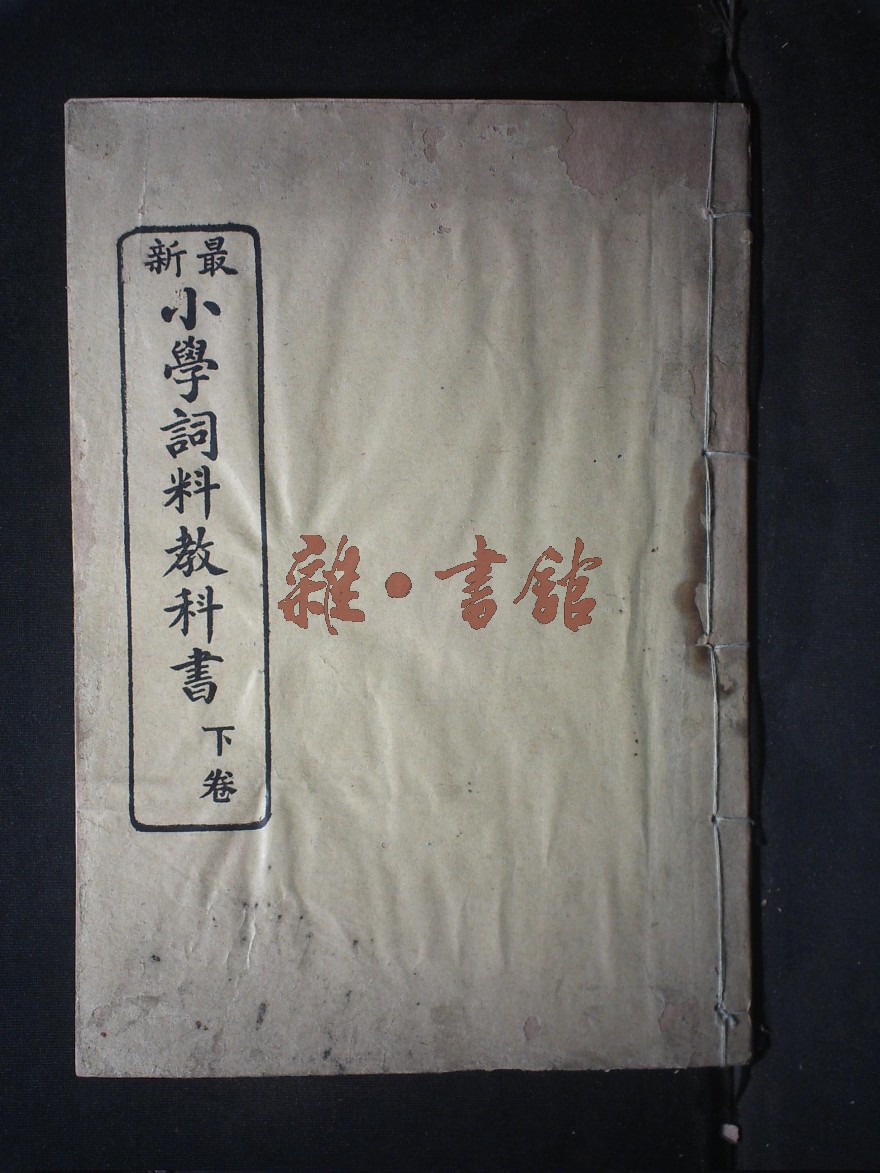 最新
小學詞料教科書
下卷
雜·書館